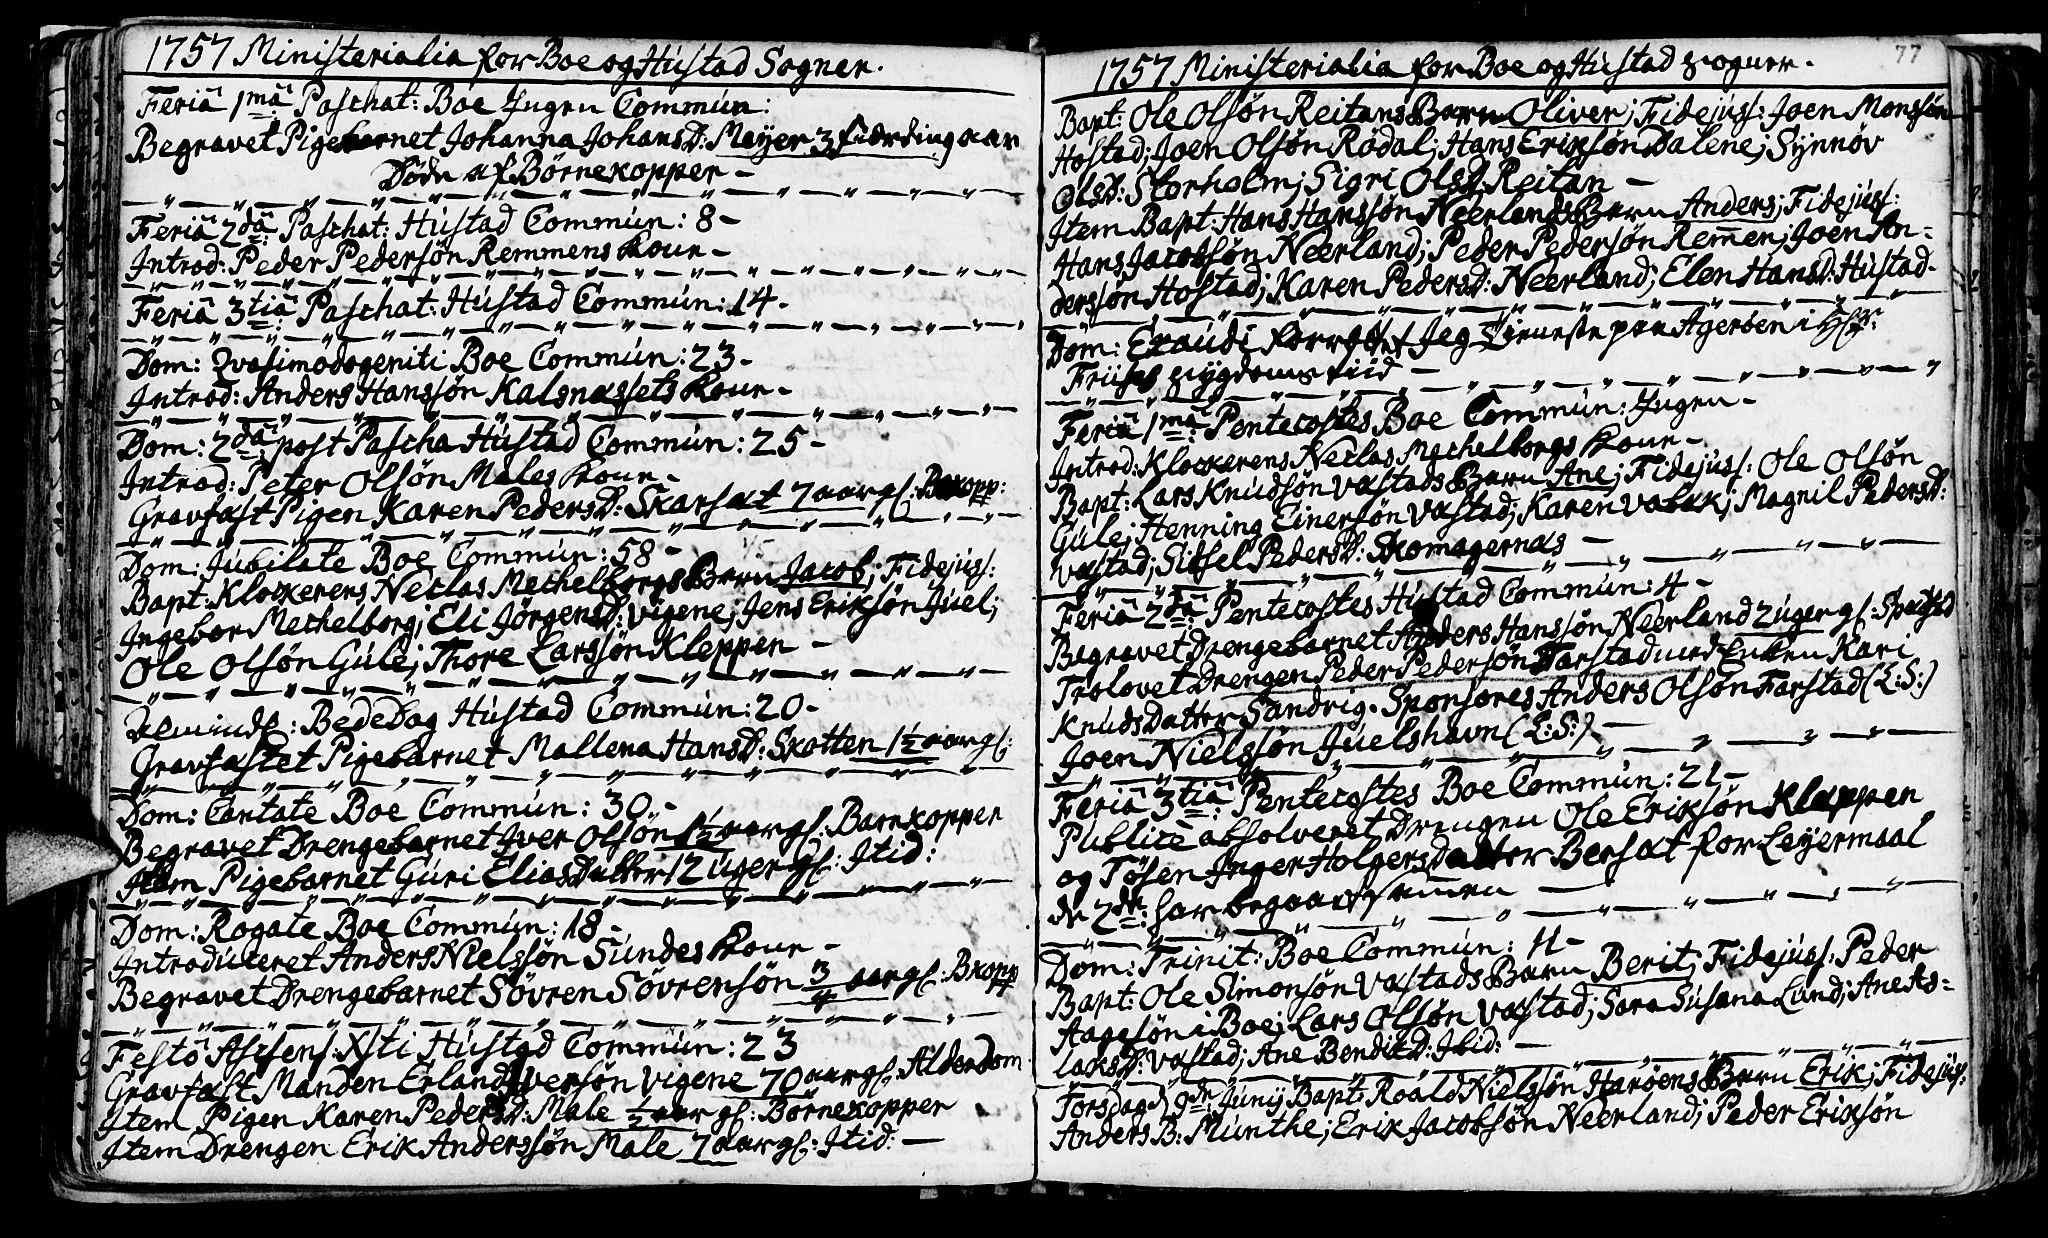 1757 Ministerialia for Boe og Hústad Sogner.
Feriâ 1mâ: Paschat: Boe Ingen Commún:
Begravet Pigebarnet Johanna JohansD: Meyer 3 fierding aar
Döde af Börnekopper –
Feriâ 2dâ: Paschat: Hústad Commún: 8 –
Introd: Peder Pedersön Remmens Kone –
Feriâ 3tiâ: Paschat: Hústad Commún: 14 –
Dom: Qvasimodogeniti Boe Commún: 23 –
Introd: Anders Hanssön Kalsnæssets Kone –
Dom: 2dâ: post Pascha Hústad Commún: 25 –
Introd: Peter Olsön Males Kone –
Gravfæst Pigen Karen PedersD: Skarsæt 7 aar gl: Bkopp:
Dom: Júbilate Boe Commún: 58 –
Bapt: Klockerens Neclas Mechelborgs Barn Jacob; Fidejúss:
Ingebor Mechelborg; Eli JörgensD: Vigene; Jens Eriksön Júel;
Ole Olsön Gúle; Thore Larssön Kleppen –
BedeDag Hústad Commún: 20 –
Gravfæstet Pigebarnet Mallena HansD: Skotten 1½ aar gl:
Dom: Cantate Boe Commún: 30 –
Begravet Drengebarnet Iver Olsön 1½ aar gl: Barnkopper
Item Pigebarnet Gúri EliasDatter 12 úger gl: Ibid:
Dom: Rogate Boe Commún: 18 –
Introdúceret Anders Nielssön Súndes Kone –
Begravet Drengebarnet Sövren Sövrensön 3/4 aar gl: Bkopp
Festô Ascens: Xsti Hústad Commún: 23
Gravfæst Manden Erland Iversön Vigene 70 aar gl: AlderDom
Item Pigen Karen PedersD: Male ½ aar gl: Börnekopper
Item Drengen Erik Anderssön Male 7 aar gl: Ibid: –
77
1757 Ministerialia for Boe og Hústad Sogner.
Bapt: Ole Olsön Reitans Barn Oliver; Fidejúss: Joen Monssön
Hostad; Joen Olsön Rödal; Hans Eriksön Dalene; Synnöv
OlsD: Storholm; Sigri OlsD: Reitan –
Item Bapt: Hans Hanssön Neerlands Barn Anders; Fidejúss:
Hans Jacobsön Neerland; Peder Pedersön Rem̅en; Joen An-
derssön Hostad; Karen PedersD: Neerland; Elen HansD: Hústad –
Dom: Exaudi forrettet Jeg Tieneste paa Ageröen i Hr:
Friises sygdoms tiid –
Feriâ 1mâ: Pentecostes Boe Commún: Ingen –
Introd: Klockerens Neclas Mechelborgs Kone –
Bapt: Lars Knúdsön Vastads Barn Ane; Fidejúss: Ole Olsön
Gúle; Henning Einersön Vastad; Karen; Magnil PedersD:
Vastad; Sitsel PedersD: Skomagernæs –
Feriâ 2dâ: Pentecostes Hústad Commún: 4 –
Begravet Drengebarnet Anders Hanssön Neerland 2 úger gl:
Trolovet Drengen Peder Pedersön Farstad med Enken Kari
KnúdsDatter Sandvig. Sponsores Anders Olsön Farstad (L:S:)
Joen Nielssön Júelshavn (L:S:) –
Feriâ 3tiâ: Pentecostes Boe Commún: 21 –
Publicè absolveret Drengen Ole Eriksön Kleppen
og Tösen Inger HolgersDatter Bersæt for Leyermaal
de 2de: har begaaet sam̅en –
Dom: Trinit: Boe Commún: 4 –
Bapt: Ole Simonsön Vastads Barn Berit; Fidejúss: Peder
Aagesön i Boe; Lars Olsön Vastad; Sara Súsana Lúnd; Ane As-
laksD: Vastad; Ane BendixD: Ibid: –
Torsdag d 9de: Júnij Bapt: Roald Nielssön Haröens Barn Erik; Fidejús:
Anders B: Múnthe; Erik Jacobsön Neerland; Peder Eriksön